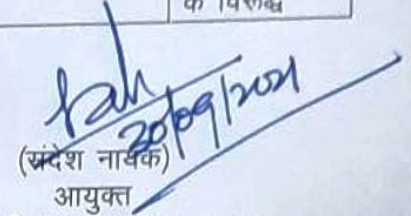 के विरूद्ध
20/09/2021
(संदेश नायक)
आयुक्त